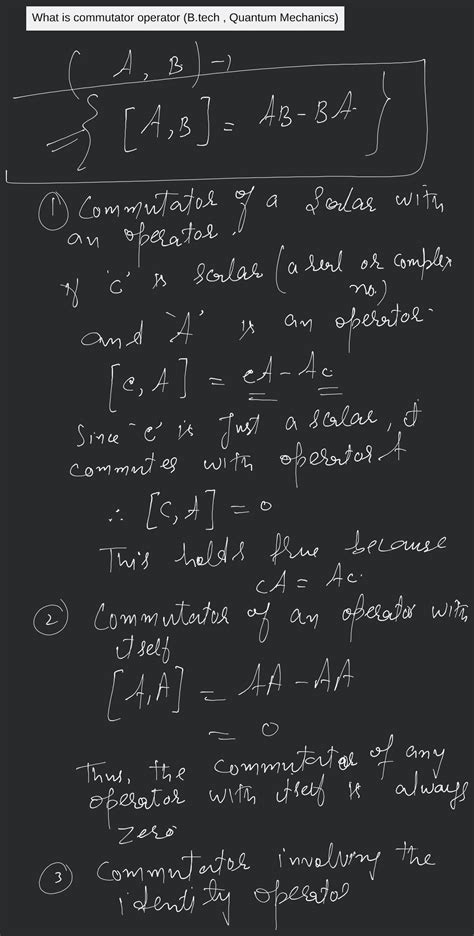 What is commutator operator (B.tech , Quantum Mechanics)
(A, B) →
⇒ { [A,B] = AB - BA }
① Commutator of a Scalar with
an operator.
If 'c' is scalar (a real or complex
no.)
and 'A' is an operator.
[c, A] = cA - Ac
Since 'c' is Just a scalar, it
commutes with operator A
∴ [C, A] = 0
This holds true because
cA = Ac.
② Commutator of an operator with
itself
[A, A] = AA - AA
= 0
Thus, the commutator of any
operator with itself is always
zero
③ Commutator involving the
identity operator